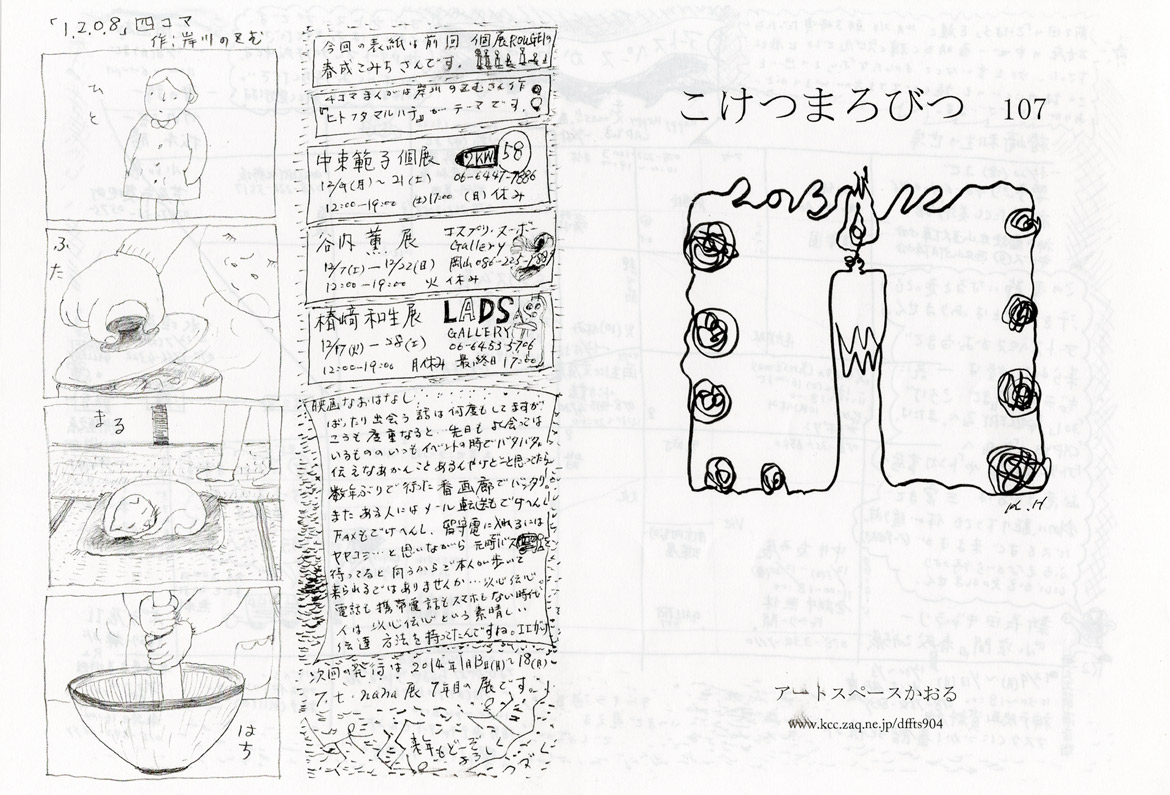 「1208」四コマ
作:岸川のぞむ
ひと
ふた
まる
はち
今回の表紙は前回 個展ROUGEの
春成こみちさんです。
4コマまんがは岸川のぞむさん作
『ヒトフタマルハチ』がテーマです。
中束範子個展 2kw 58
12/9(月)〜21(土) 06-6447-7886
12:00-19:00 (土)17:00 (日)休み
谷内薫展 エスプリ・ヌーボー
Gallery
12/7(土)—12/22(日) 岡山086-225-
12:00-19:00 火休み
椿崎和生展 LADS
GALLERY
12/17(火)—28(土) 06-6453-5706
12:00-19:00 月休み 最終日17:00
映画なおはなし
ばったり出会う話は何度もしてますが
こうも度重なると…先日も よく会っては
いるもののいつもイベントの時でバタバタ。
伝えなあかんことあるんやけどと思ってたら
数年ぶりで行った着画廊でバッタリ。
またある人にはメール転送もできへんし
FAXもできへんし、留守電に入れるには
ヤヤコシ…と思いながら バス
待ってると向うからご本人が歩いて
来られるではありませんか…以心伝心。
電話も携帯電話もスマホもない時代
人は以心伝心という素晴しい
伝達方法を持ってたんですね。
次回の発行は2014年1月13日(月)〜18(月)
七・nana展 7年目の展です。
来年もどーぞよろしく
こけつまろびつ 107
2013 12
K.H
アートスペースかおる
www.kcc.zaq.ne.jp/dffts904